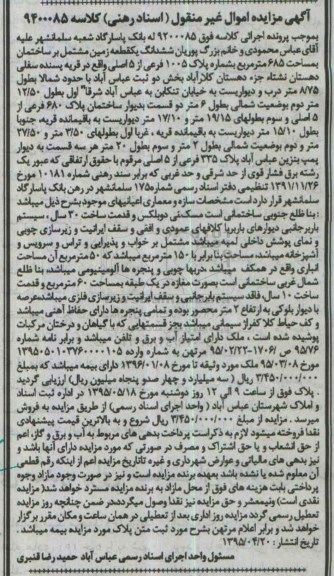 آگهی مزایده اموال غیر منقول (اسناد رهنی) کلاسه ۹۴۰۰۰۸۵
بموجب پرونده اجرائی کلاسه فوق ۹۲۰۰۰۸۵ له بانک پاسارگاد شعبه سلمانشهر علیه
آقای عباس محمودی و خانم بزرگ پوریان ششدانگ یکقطعه زمین مشتمل بر ساختمان
بمساحت ۶۸۵ مترمربع بشماره پلاک ۱۰۰۵ فرعی از ۵ اصلی واقع در قریه پسنده سفلی
دهستان نشتاء جزء دهستان کلارآباد بخش دو ثبت عباس آباد با حدود شمالا بطول
۸/۷۵ متر درب و دیواریست به خیابان تنکابن به عباس آباد شرقا" اول بطول ۱۲/۵۰
متر دوم بوضعیت شمالی بطول ۶ متر دو قسمت بدیوار ساختمان پلاک ۶۸۰ فرعی از
۵ اصلی و سوم بطولهای ۱۹/۱۵ متر و ۱۷/۱۰ متر دیواریست به باقیمانده قریه، جنوبا
بطول ۱۵/۱۰ متر دیواریست به باقیمانده قریه، غربا اول بطولهای ۳/۵۰ متر و ۲۷/۵۰
متر و دوم بوضعیت شمالی بطول ۲ متر و سوم بطول ۲۰ متر هر سه قسمت به دیوار
پمپ بنزین عباس آباد پلاک ۳۳۵ فرعی از ۵ اصلی مرقوم با حقوق ارتفاقی که عبور یک
رشته برق فشار قوی از حد شرقی و حد غربی که برابر سند رهنی شماره ۱۰۱۸۱ مورخ
۱۳۹۱/۱۱/۲۶ تنظیمی دفتر اسناد رسمی شماره ۱۷۵ سلمانشهر در رهن بانک پاسارگاد
سلمانشهر قرار دارد است مشخصات سازه و معماری اعیانیهای موجود بشرح ذیل میباشد
: بنا ظلع جنوبی ساختمانی است مسکنی دوبلکس و قدمت ساخت ۳۰ سال، سیستم
باربر جانبی دیوارهای باربر با کلافهای عمودی و افقی و سقف ایرانیت و زیرسازی چوبی
و نمای پوشش داخلی لمبه میباشد مشتمل بر خواب و پذیرایی و تراس و سرویس و
آشپزخانه میباشد، مساحت بنا برابر با ۱۵۰ مترمربع میباشد که ۵۰ مترمربع آن مساحت
انباری واقع در همکف میباشد، دربها چوبی و پنجره ها آلومینیومی میباشد، بنا ظلع
شمال غربی ساختمانی است بصورت مغازه در یک طبقه بمساحت ۶۰ مترمربع و قدمت
ساخت ۱۰ سال، فاقد سیستم بابر جانبی و سقف ایرانیت و زیرسازی فلزی میباشد، عرصه
با دیوار بلوکی به ارتفاع ۲ متر محصور بوده و تمامی پنجره ها دارای حفاظ آهنی میباشد
و کف حیاط کلا کفراژ سیمانی میباشد بجز قسمتهایی که با گیاهان و درختان مرکبات
پوشیده شده است، ملک دارای امتیاز آب و برق و تلفن میباشد و برابر نامه شماره
۹۵۷۶ ص/۱۷۰۶-۹۵/۰۲/۲۲ مرتهن به شماره وارده ۱۳۹۵۰۵۰۱۰۳۷۶۰۰۰۰۱۰۵
مورخ ۹۵/۰۳/۰۸ ملک مورد وثیقه تا مورخ ۱۳۹۶/۰۱/۰۸ دارای بیمه میباشد که بمبلغ
۳/۴۵۰/۰۰۰/۰۰۰ ریال (سه میلیارد و چهار صدو پنجاه میلیون ریال) ارزیابی گردید
. پلاک فوق از ساعت ۹ الی ۱۲ روز دوشنبه مورخ ۱۳۹۵/۰۵/۱۸ در اداره ثبت اسناد
و املاک شهرستان عباس آباد (واحد اجرای اسناد رسمی) از طریق مزایده به فروش
میرسد. مزایده از مبلغ ۳/۴۵۰/۰۰۰/۰۰۰ ریال شروع و به بالاترین قیمت پیشنهادی
نقدا فروخته میشود لازم به ذکراست پرداخت بدهی های مربوط به آب و برق و گاز، اعم
از حق انشعاب و یا حق اشتراک و مصرف در صورتی که مورد مزایده دارای آنها باشد و
نیز بدهی های مالیاتی و عوارض شهرداری و غیره تاتاریخ مزایده اعم از اینکه رقم قطعی
آن معلوم شده یا نشده باشد بعهده برنده مزایده است و نیز در صورت وجود مازاد وجوه
پرداختی بابت هزینه های فوق از محل مازاد به برنده مزایده مسترد خواهد شد( مزایده
نقدی است) ونیمعشر و حق مزایده نقدا وصول میگردد،در ضمن چنانچه روز مزایده
تعطیل رسمی گردد مزایده روز اداری بعد از تعطیلی در همان ساعت و مکان مقرر برگزار
خواهد شد و برابر اعلام مرتهن بشرح مورد ثبت متن پلاک مورد مزایده بیمه میباشد.
تاریخ انتشار: ۱۳۹۵/۰۴/۲۰
مسئول واحد اجرای اسناد رسمی عباس آباد حمید رضا قنبری